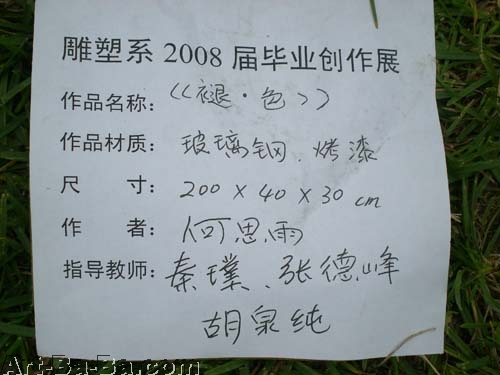 雕塑系 2008 届毕业创作展
作品名称：《褪·色》
作品材质：玻璃钢、烤漆
尺 寸：200 × 40 × 30 cm
作 者：何思雨
指导教师：秦璞、张德峰
胡泉纯
Art-Ba-Ba.com